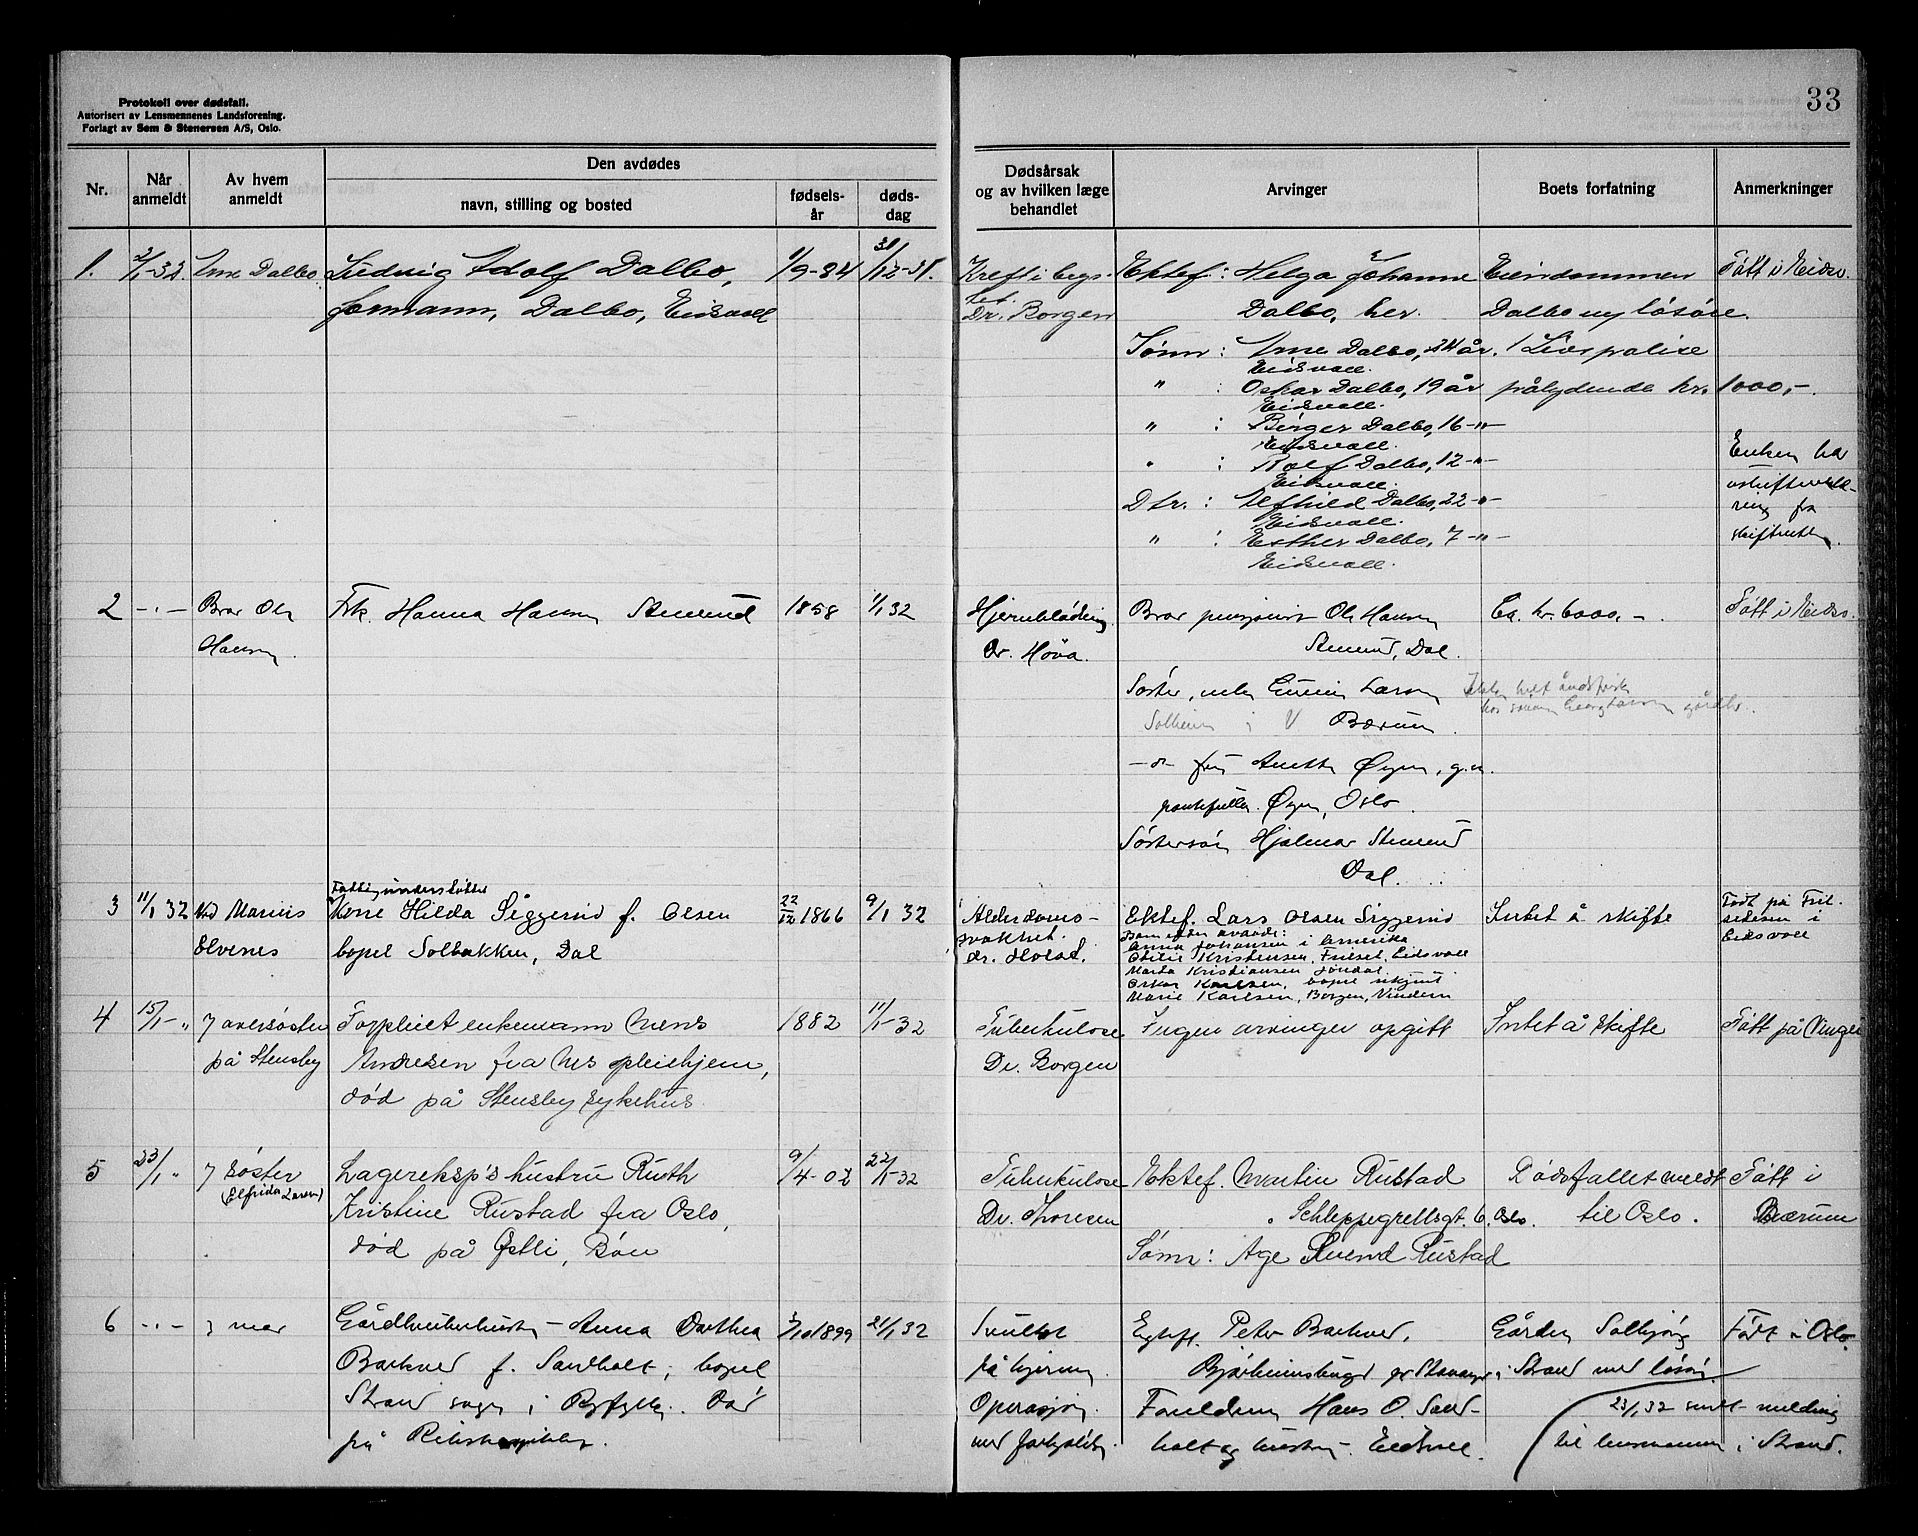 Protokoll over dødsfall.
Autorisert av Lensmennenes Landsforening.
Forlagt av Sem & Stenersen A/S, Oslo.
33
Nr.
Når anmeldt
Av hvem anmeldt
Den avdødes
navn, stilling og bosted
fødsels-år
døds-dag
Dødsårsak og av hvilken læge behandlet
Arvinger
Boets forfatning
Anmerkninger
1.
2/1-32.
Arne Dalbo.
Ludvig Adolf Dalbo,
formann, Dalbo, Eidsvoll
1/9-84
31/12-31.
Kreft i
Dr. Borgen
Ektef.: Helga Johanne
Dalbo, her.
Sønn: Arne Dalbo, 24 år.
Eidsvoll.
" : Oskar Dalbo, 19 år
Eidsvoll.
" : Birger Dalbo, 16 -"-
Eidsvoll.
" : Rolf Dalbo, 12 -"-
Eidsvoll.
Dtr. : Alfhild Dalbo, 22 -"-
Eidsvoll.
" : Esther Dalbo, 7 -"-
Eidsvoll.
Eiendommen
Dalbo m løsøre.
1 Livspolise
pålydende kr. 1000,-.
Født i Eidsv.
Enken har
uskifteerklæ-
ring fra
skifteretten.
2
-"-
Bror Ole
Hansen.
Frk. Hanna Hansen Stensrud
1858
1/1 32
Hjerneblødning.
Dr. Hova.
Bror pensjonist Ole Hansen
Stensrud, Dal.
Søster, enke Larsen
Solheim i V Bærum.
-"- fru Anette Øyen, g.m.
Øyen, Oslo.
Søstersøn Hjalmar Stensrud
Dal.
Ca. kr. 6000,-.
hos sønnen Georg Larsen
Født i Eidsv.
3
11/1 32
Ved Marius
Elvenes
Fattigunderstøttet
Kone Hilda Siggerud f. Olsen
bopel Solbakken, Dal
22/12 1866
9/1 32
Alderdoms-
svakhet.
dr. Holad.
Ektef. Lars Olsen Siggerud
Barn efter avdøde:
Anna Johansen i Amerika
Otilie Kristensen, Frilset, Eidsvoll
Marta Kristiansen Jøndal.
Oskar Karlsen, bopel ukjent
Marie Karlsen, Borgen, Vindern
Intet å skifte
Født på Fril-
setesen i
Eidsvoll
4
15/1 - "
på Stensby
Forpleiet enkemann Mens
Andresen fra Nes pleiehjem,
død på Stensby sykehus.
1882
11/1-32
Tuberkulose
Dr. Borgen
Ingen arvinger opgitt
Intet å skifte
Født på Vinger
5
23/1 "
7 søster
(Elfrida Larsen)
Lagereksp's hustru Ruth
Kristine Rustad fra Oslo,
død på Østli, Bøn
9/4-02
22/1-32
Tuberkulose
Dr. Thoresen
Ektef. Martin Rustad
Schleppegrellsgt. 6. Oslo.
Sønn: Age Svend Rustad
Dødsfallet meldt
til Oslo.
Født i
Bærum
6
-"-
Gårdbrukerhustru - Anna Dorthea
Barkved f. Sandholt, bopel
Strand sogn i Ryfylke. Død
på Rikshospitalet.
3/10 1899
21/1 32
Svulst
på hjernen
Operasjon
Egteft. Peter Barkved,
Bjørheimsbygd pr Stavanger
Foreldrene Hans O. Sand-
holt og hustru - Eidsvoll.
Gården Solbjørg
i Strand med løsøre.
23/1 32 sendt melding
til lensmannen i Strand.
Født i Oslo